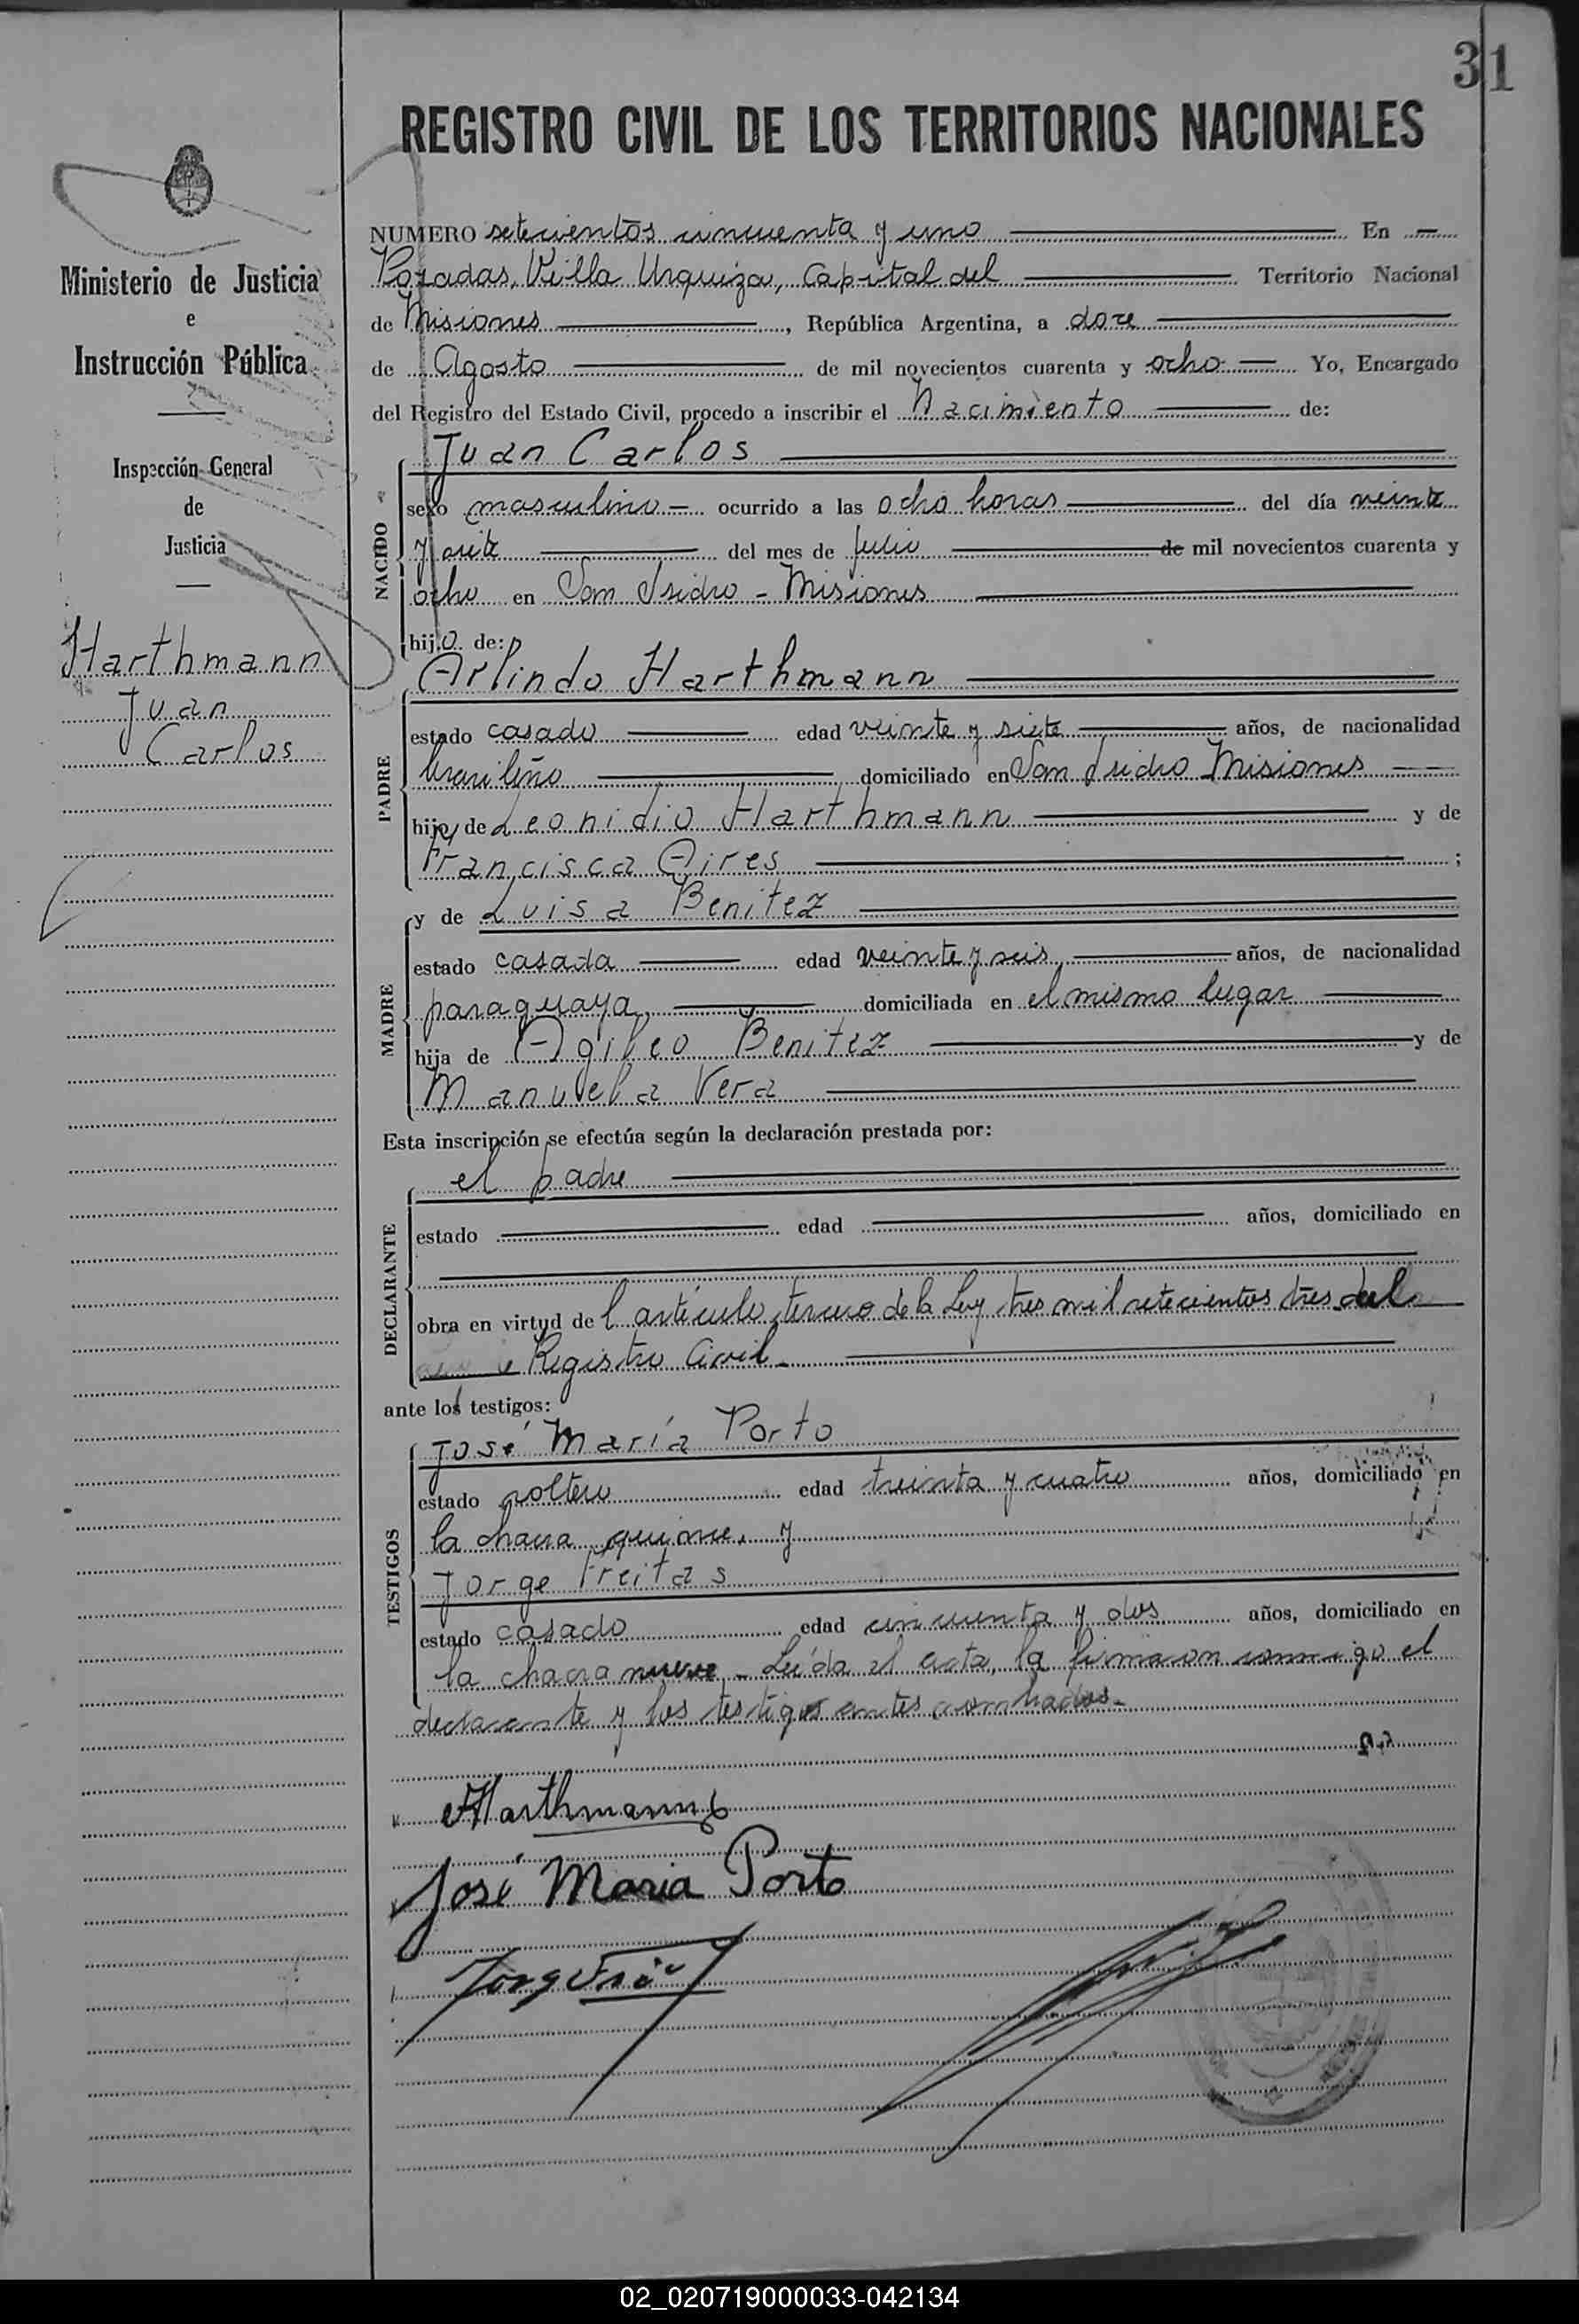 31
REGISTRO CIVIL DE LOS TERRITORIOS NACIONALES
Ministerio de Justicia
e
Instrucción Pública
Inspección General
de
Justicia
Harthmann
Juan
Carlos
NUMERO setecientos cincuenta y uno En
Posadas, Villa Urquiza, Capital del Territorio Nacional
de Misiones, República Argentina, a doce
de Agosto de mil novecientos cuarenta y ocho Yo, Encargado
del Registro del Estado Civil, procedo a inscribir el Nacimiento de:
NACIDO
Juan Carlos
sexo masculino ocurrido a las ocho horas del día veinte
y siete del mes de Julio de mil novecientos cuarenta y
ocho en San Isidro - Misiones
hijo de:
PADRE
Arlindo Harthmann
estado casado edad veinte y siete años, de nacionalidad
brasileño domiciliado en San Isidro Misiones
hijo de Leonidio Harthmann y de
Francisca Aires ;
MADRE
y de Luisa Benitez
estado casada edad veinte y seis años, de nacionalidad
paraguaya domiciliada en el mismo lugar
hija de Agileo Benitez y de
Manuela Vera
Esta inscripción se efectúa según la declaración prestada por:
DECLARANTE
el padre
estado edad años, domiciliado en
obra en virtud del artículo tercero de la Ley tres mil setecientos tres del
Registro Civil.
ante los testigos:
TESTIGOS
José María Porto
estado soltero edad treinta y cuatro años, domiciliado en
la chacra quince y
Jorge Freitas
estado casado edad cincuenta y dos años, domiciliado en
la chacra nueve - Leída el acta, la firmaron conmigo el
declarante y los testigos antes nombrados.
AHarthmann
José Maria Porto
02_020719000033-042134